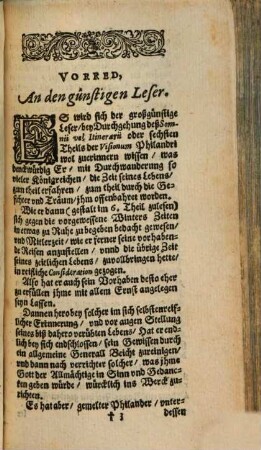 VORRED,
An den günstigen Leser.
ES wird sich der großgünstige
Leser / bey Durchgehung deß Som-
nii vel Itinerarii oder sechsten
Theils der Visionum Philandri
wol zuerinnern wissen / was
denckwürdig Er / mit Durchwanderung so
vieler Königreichen / die Zeit seines Lebens /
zum theil erfahren / zum theil durch die Ge-
sichter und Träum / jhm offenbahret worden.
Wie er dann (gestalt im 6. Theil zulesen)
sich gegen die vorgewessene Winters Zeiten
in etwas zu Ruhe zu begeben bedacht gewesen /
und Mitlerzeit / wie er ferner seine vorhaben-
de Reisen anzustellen / vnnd die übrige Zeit
seines zeitlichen Lebens / zuvollbringen hette /
in reiffliche Consideration gezogen.
Also hat er auch sein Vorhaben desto eher
zu erfüllen jhme mit allem Ernst angelegen
seyn lassen.
Dannen hero bey solcher im sich selbsten reiff-
licher Erinnerung / und vor augen Stellung
seines biß dahero verübten Lebens / Hat er end-
lich bey sich endschlossen / sein Gewissen durch
ein allgemeine Generall Beicht zureinigen /
und dann nach verrichter solcher / was jhme
Gott der Allmächtige in Sinn und Gedanc-
ken geben würde / würcklich ins Werck zu-
richten.
Es hat aber / gemelter Philander / unter-
† 3 dessen